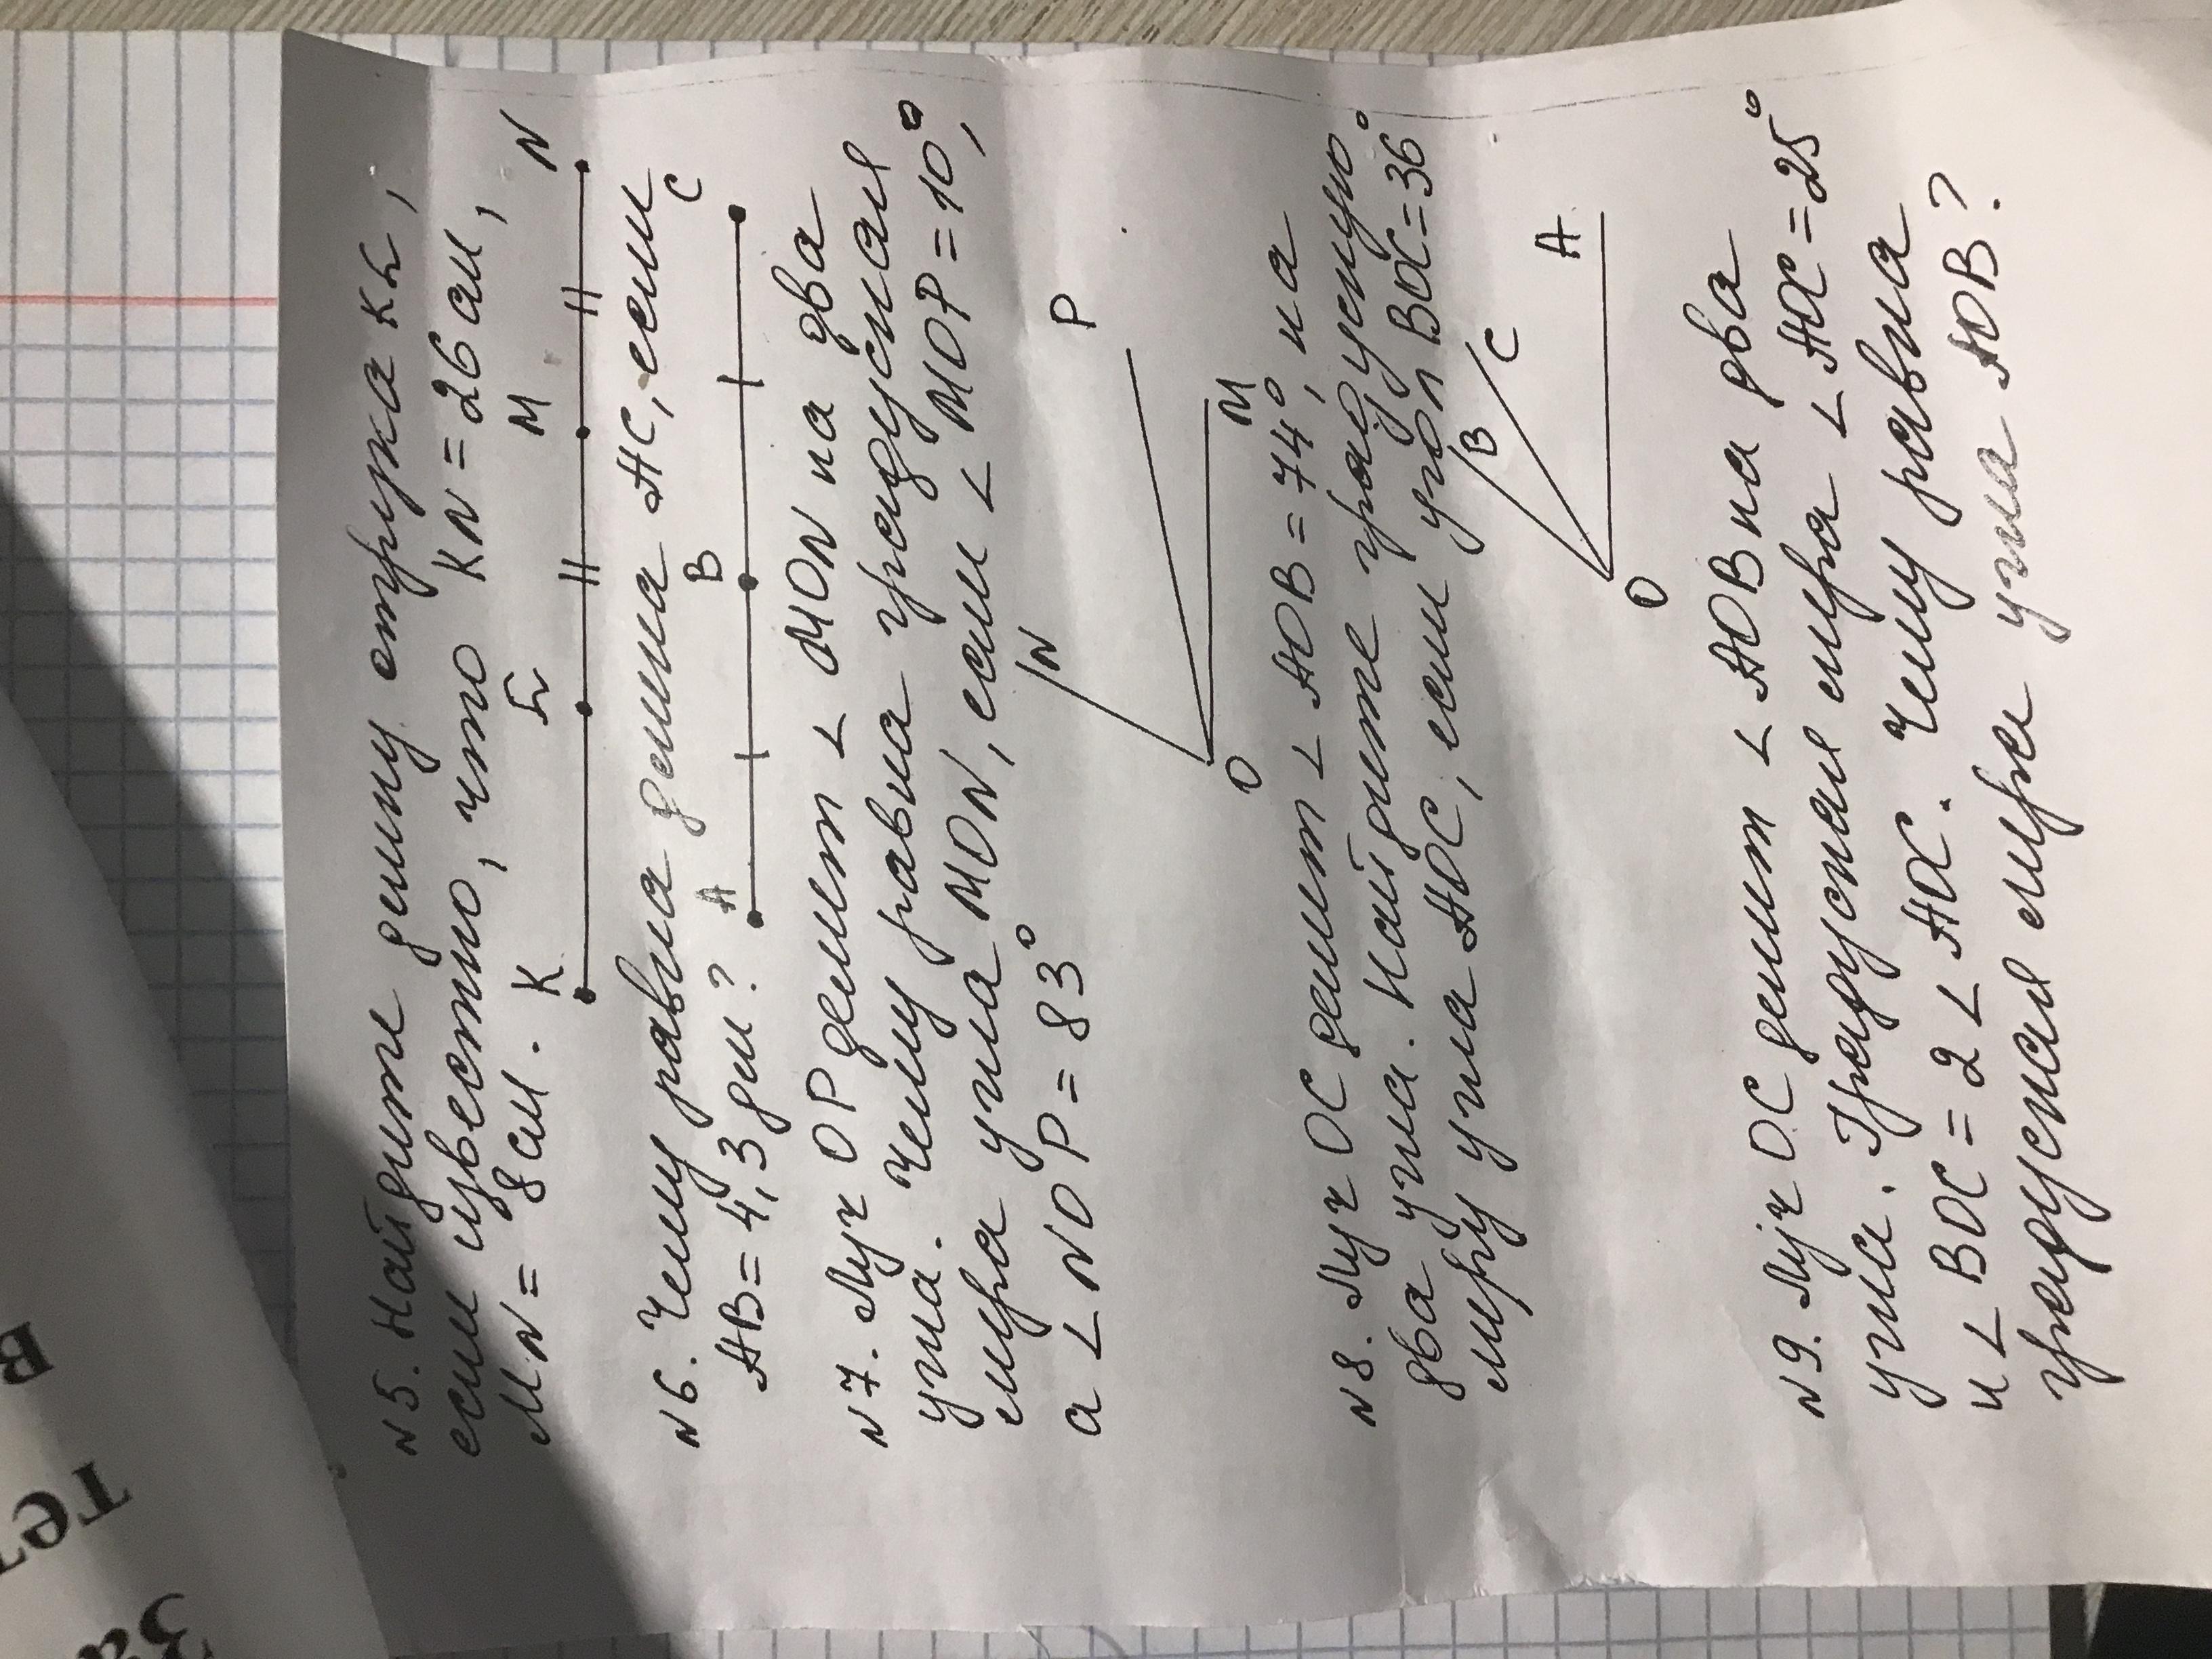 N5. Найдите длину отрезка KL,
если известно, что KN = 26 см,
MN = 8 см.
K L M N
N6. Чему равна длина AC, если
AB = 4,3 дм?
A B C
N7. Луч OP делит ∠ MON на два
угла. Чему равна градусная
мера угла MON, если ∠ MOP = 10°,
а ∠ NOP = 83°
N P
O M
N8. Луч OC делит ∠ AOB = 74°, на
два угла. Найдите градусную
меру угла AOC, если угол BOC = 36°
B C
O A
N9. Луч OC делит ∠ AOB на два
угла. Градусная мера ∠ AOC = 25°
и ∠ BOC = 2 ∠ AOC. Чему равна
градусная мера угла AOB?